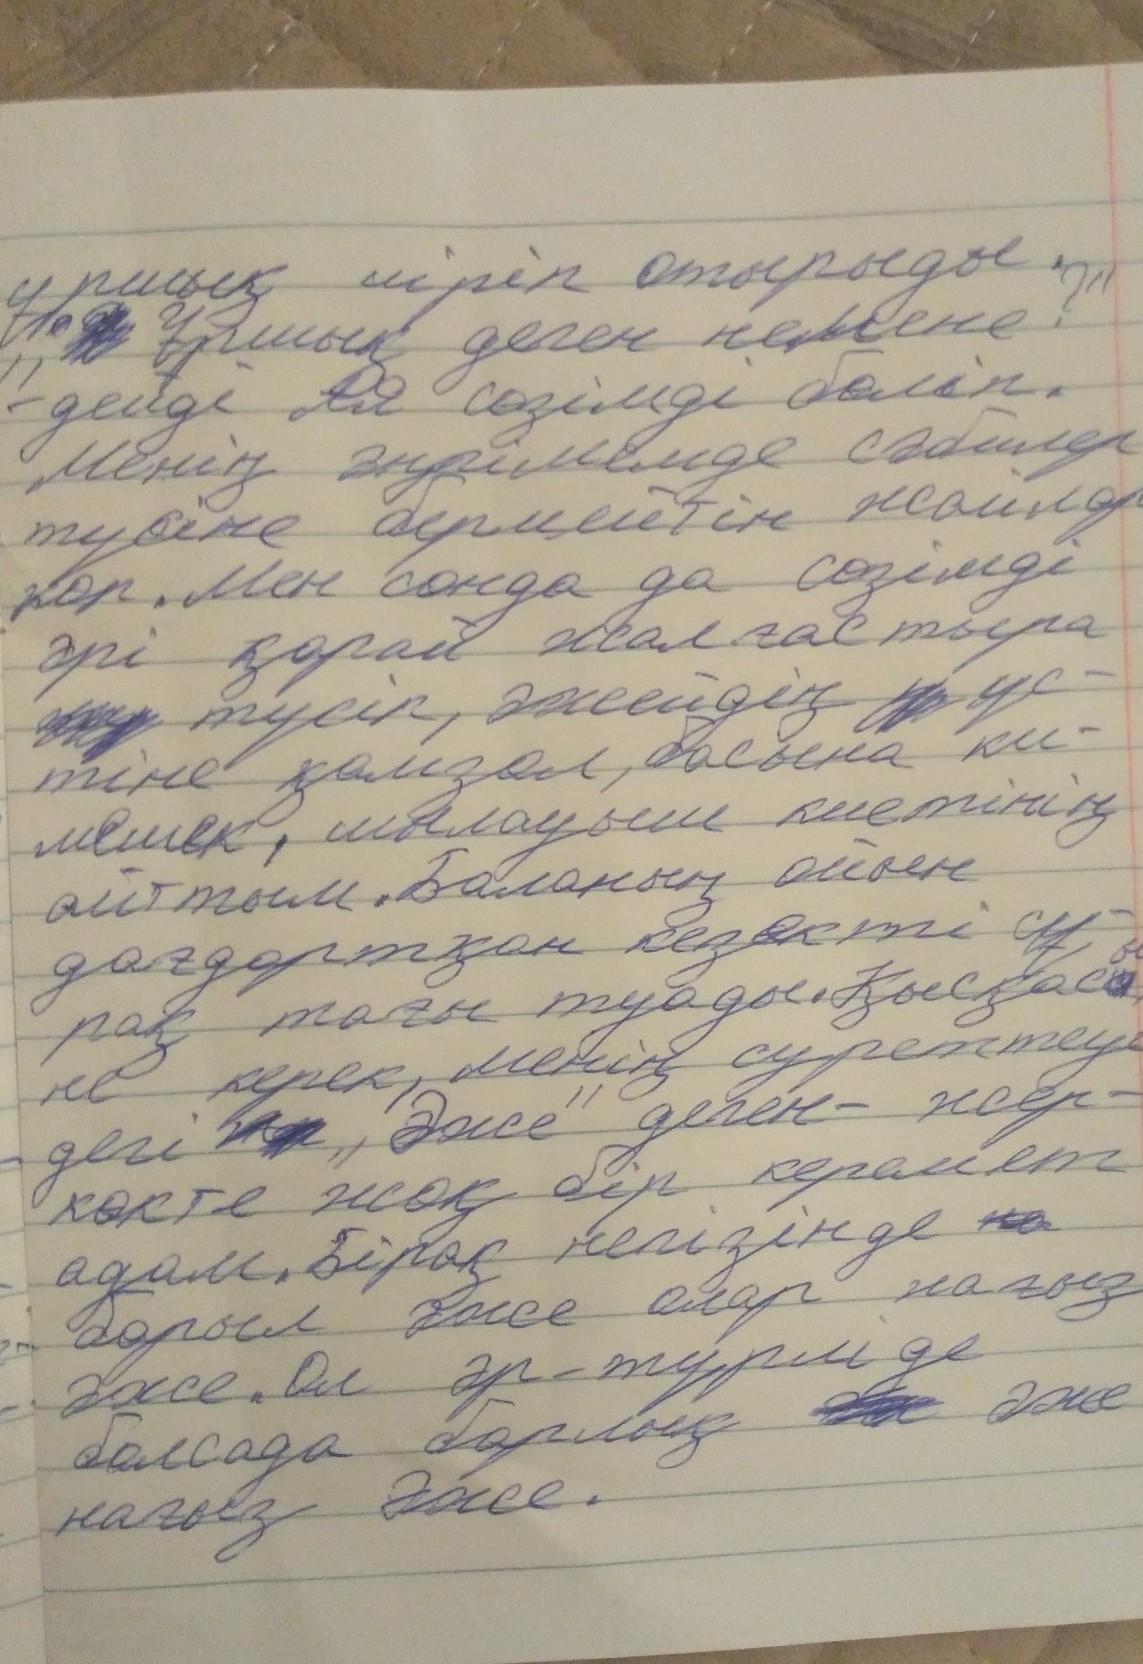 ұршық иіріп отырыды.
"Ұршық деген немене?"
-дейді Ая сөзімді бөліп.
Менің әңгімемде сәбилер
түсіне бермейтін жайлар
көп. Мен сонда да сөзімді
әрі қарай жалғастыра
түсіп, әжейдің үс-
тіне қамзол, басына ки-
мешек, шылауыш киетінің
айттым. Баланың ойын
дағдартқан кезекті сұ-
рақ тағы туады. Қысқасы
не керек, менің суреттеуім
дегі "Әже" деген- жер-
көкте жоқ бір керемет
адам. Бірақ негізінде
барыл әже олар нағыз
әже. Ол әр-түрлі де
болсада барлық әже
нағыз әже.